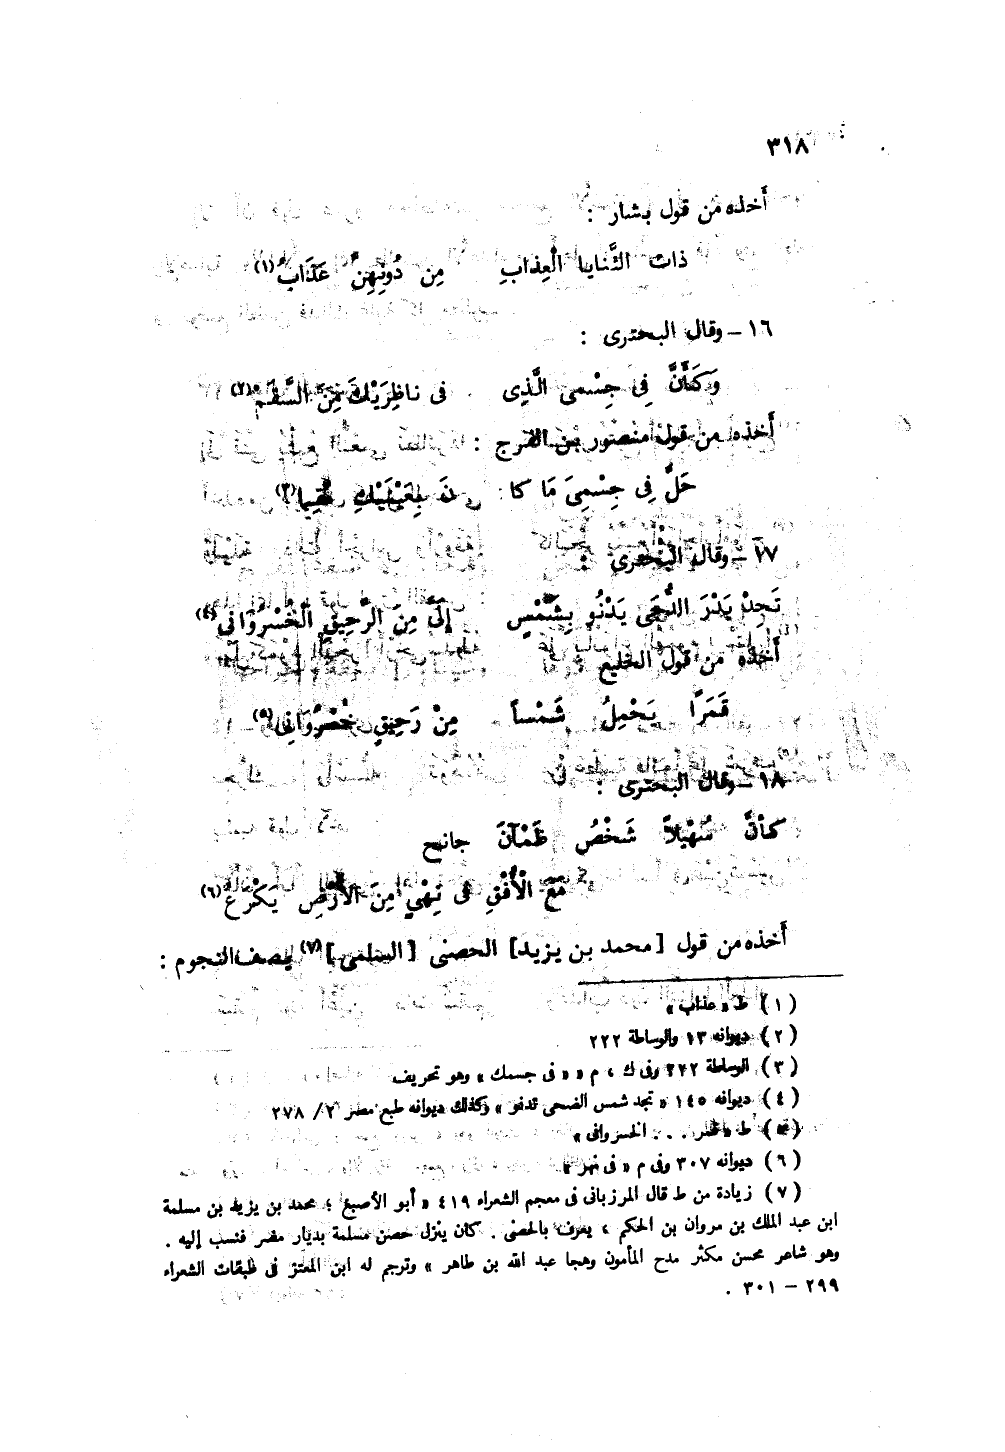 ٣١٨
أخذه من قول بشار :
ذات الثَّنايا الْعِذابِ مِن دُونِهِنَّ عَذَاب(١)
١٦ – وقال البحترى :
وَكَأَنَّ فِى جِسْمِى الَّذِى فى ناظِرَيْكَ مِنَ السَّقَمْ(٢)
أخذه من قول منصور بن الفرج :
حَلَّ فِى جِسْمِىَ مَا كا نَ بِعَيْنَيْكِ مُقِيما(٣)
١٧ – وقال البحترى :
تَجِدْ بَدْرَ الدُّجَى يَدْنُو بِشَمْسٍ إِلَىَّ مِنَ الرَّحِيقِ الْخُسْرُوَانى(٤)
أخذه من قول الخليع :
قَمَرًا يَحْمِلُ شَمْساً مِنْ رَحِيقٍ خُسْرُوَانى(٥)
١٨ – وقال البحترى :
كأنَّ سُهَيْلاً شَخْصُ ظَمْآنَ جانِح
مَعَ الْأُفْقِ فى نِهْىٍ مِنَ الأَرْضِ يَكْرَع(٦)
أخذه من قول [محمد بن يزيد] الحصنى [السلمى](٧) يصف النجوم :
(١) ط « عذاب »
(٢) ديوانه ١٣ والوساطة ٢٢٢
(٣) الوساطة ٢٢٢ وفى ك ، م « فى جسمك » وهو تحريف
(٤) ديوانه ١٤٥ « تجد شمس الضحى تدنو » وكذلك ديوانه طبع مصر ٢/ ٢٧٨
(٥) ط « قمر . . . الخسروانى »
(٦) ديوانه ٣٠٧ وفى م « فى نهر »
(٧) زيادة من ط قال المرزبانى فى معجم الشعراء ٤١٩ « أبو الأصبع ؛ محمد بن يزيد بن مسلمة
ابن عبد الملك بن مروان بن الحكم ، يعرف بالحصنى . كان ينزل حصن مسلمة بديار مضر فنسب إليه .
وهو شاعر محسن مكثر مدح المأمون وهجا عبد الله بن طاهر » وترجم له ابن المعتز فى طبقات الشعراء
٢٩٩ – ٣٠١ .